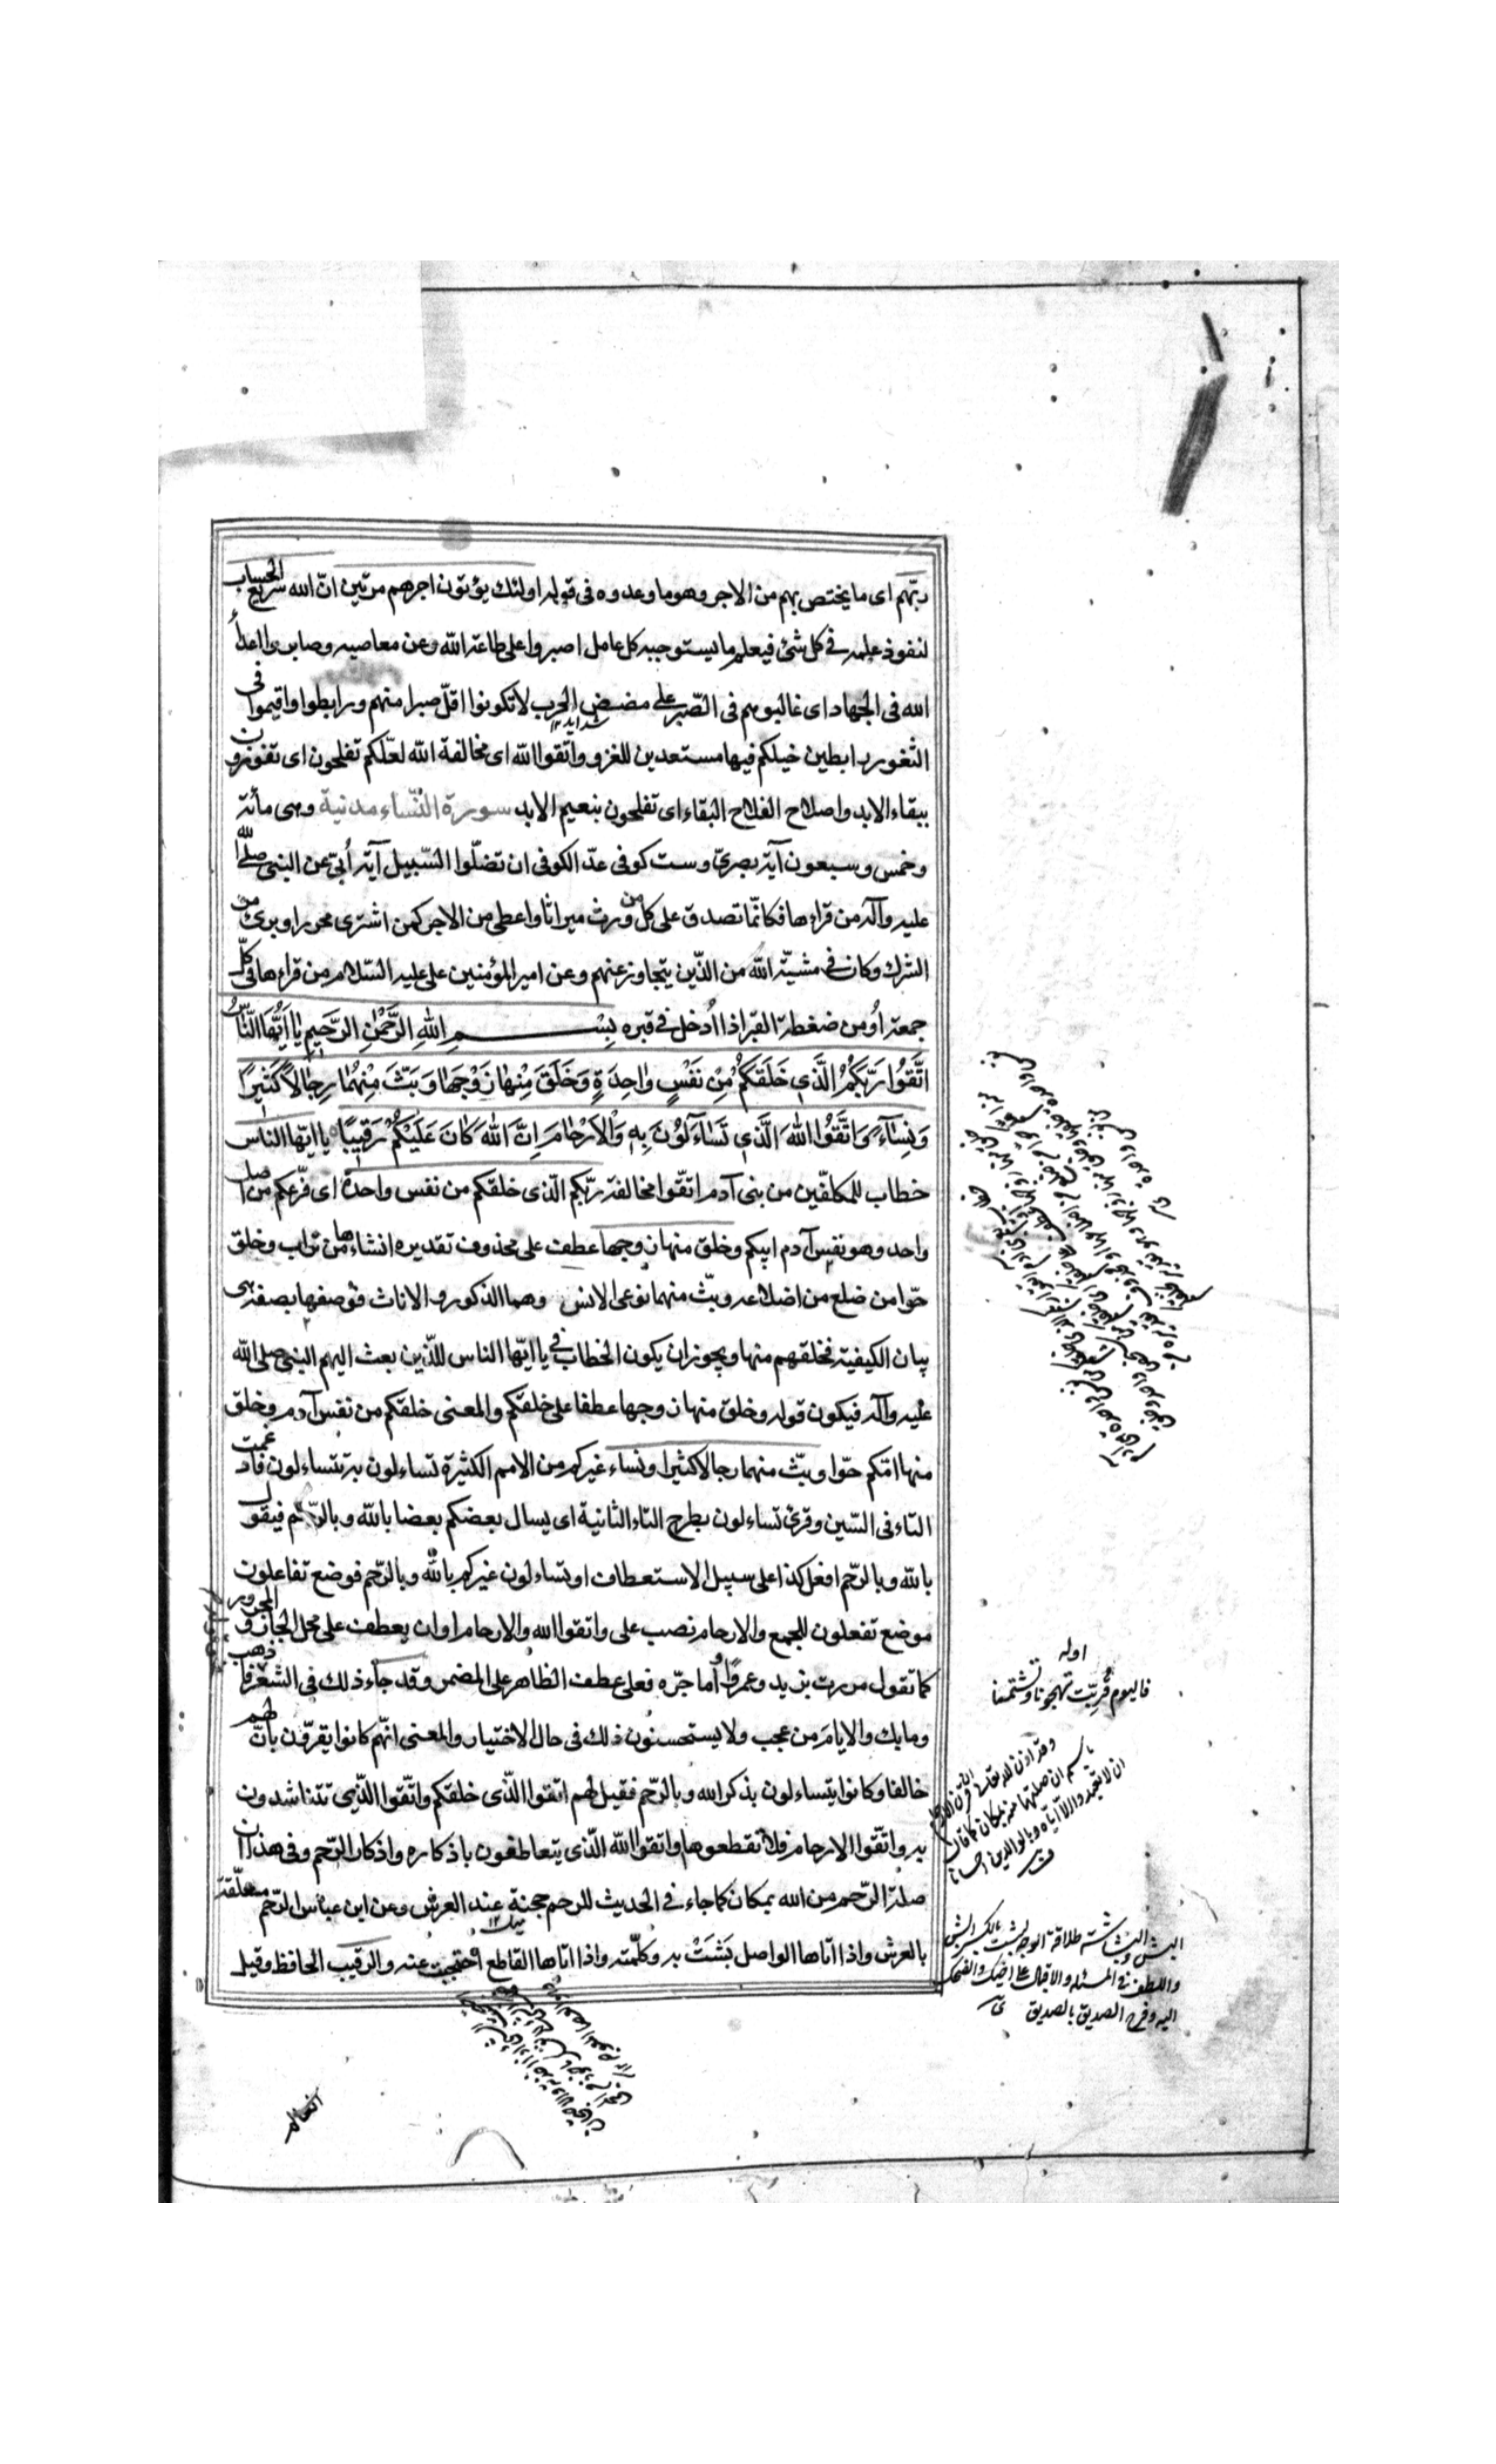 ربّهم اى ما يختص بهم من الاجر وهو ما وعدوه فى قوله اولئك يؤتون اجرهم مرتين انّ الله سريع الحساب
لنفوذ علمه فى كل شئ فيعلم ما يستوجبه كل عامل اصبروا على طاعة الله وعن معاصيه وصابروا اعداء
الله فى الجهاد اى غالبوهم فى الصّبر على مضض الحرب لا تكونوا اقلّ صبرا منهم ورابطوا واقيموا فى
الثغور رابطين خيلكم فيها مستعدين للغزو واتّقوا الله اى مخالفة الله لعلّكم تفلحون اى تفوزون
ببقاء الابد واصلاح الفلاح البقاء اى تفلحون بنعيم الابد سورة النّساء مدنية وهى مأئة
وخمس وسبعون آية بصرىّ وست كوفى عدّ الكوفى ان تضلّوا السّبيل آية أبىّ عن النبى صلى الله
عليه وآله من قراءها فكانّما تصدق على كل من ورث ميراثا واعطى من الاجر كمن اشترى محررا وبرئ من
الشرك وكان فى مشيّة الله من الذّين يتجاوز عنهم وعن امير المؤمنين على عليه السّلام من قراءها فى كلّ
جمعة أومن ضغطة القبر اذا ادخل فى قبره بِسْمِ اللهِ الرَّحْمٰنِ الرَّحِيمِ يٰا اَيُّهَا النّٰاسُ
اتَّقُوا رَبَّكُمُ الَّذِي خَلَقَكُمْ مِنْ نَفْسٍ وٰاحِدَةٍ وَخَلَقَ مِنْهٰا زَوْجَهٰا وَبَثَّ مِنْهُمٰا رِجٰالاً كَثِيرًا
وَنِسٰآءً وَاتَّقُوا اللهَ الَّذِي تَسٰآءَلُونَ بِهِ وَالْاَرْحٰامَ اِنَّ اللهَ كٰانَ عَلَيْكُمْ رَقِيبًا يا ايّها الناس
خطاب للمكلفّين من بنى آدم اتقّوا مخالفة ربّكم الّذى خلقكم من نفس واحدة اى فرّعكم من اصل
واحد وهو نفس آدم ابيكم وخلق منها زوجها عطف على محذوف تقديره انشاءها من تراب وخلق
حوّا من ضلع من اضلاعه وبثّ منهما نوعى الانس وهما الذكور والاناث فوصفها بصفة هى
بيان الكيفية فخلقهم منها ويجوز ان يكون الخطاب فى يا ايّها الناس للذّين بعث اليهم النبى صلى الله
عليه وآله فيكون قوله وخلق منها زوجها عطفا على خلقكم والمعنى خلقكم من نفس آدم وخلق
منها امّكم حوّا وبثّ منهما رجالا كثيرا ونساء غيركم من الامم الكثيرة تساءلون به تتساءلون فادغمت
التاء فى السّين وقرئ تساءلون بطرح التاء الثانية اى يسال بعضكم بعضا بالله وبالرّحم فيقول
بالله وبالرّحم افعل كذا على سبيل الاستعطاف او تساءلون غيركم بالله وبالرّحم فوضع تفاعلون
موضع تفعلون للجمع والارحام نصب على واتقوا الله والارحام او ان يعطف على محل الجار والمجرور
كما تقول مررت بزيد وعمرًا وأما جرّه فعلى عطف الظاهر على المضمر وقد جاء ذلك فى الشعر فاذهب
وما بك والايام من عجب ولا يستحسنون ذلك فى حال الاختيار والمعنى انّهم كانوا يقرّون بانّ لهم
خالقا وكانوا يتساءلون بذكر الله وبالرّحم فقيل لهم اتقوا الذّى خلقكم واتّقوا الذّى تتناشدون
به واتّقوا الارحام فلا تقطعوها واتقوا الله الّذى يتعاطفون باذكاره واذكار الرّحم وفى هذا ان
صلة الرّحم من الله بمكان كما جاء فى الحديث للرحم حجنة عند العرش وعن ابن عباس الرّحم معلّقة
بالعرش واذا اتاها الواصل بَشَّتْ به وكلّمته واذا اتاها القاطع احتجبت عنه والرقيب الحافظ وقيل
اوله
فاليوم قرّبت تهجونا وتشتمنا
البش والبشاشة طلاقة الوجه
واللطف فى المسئلة والاقبال على اخيك والضحك
اليه وفرح الصديق بالصديق
العالم